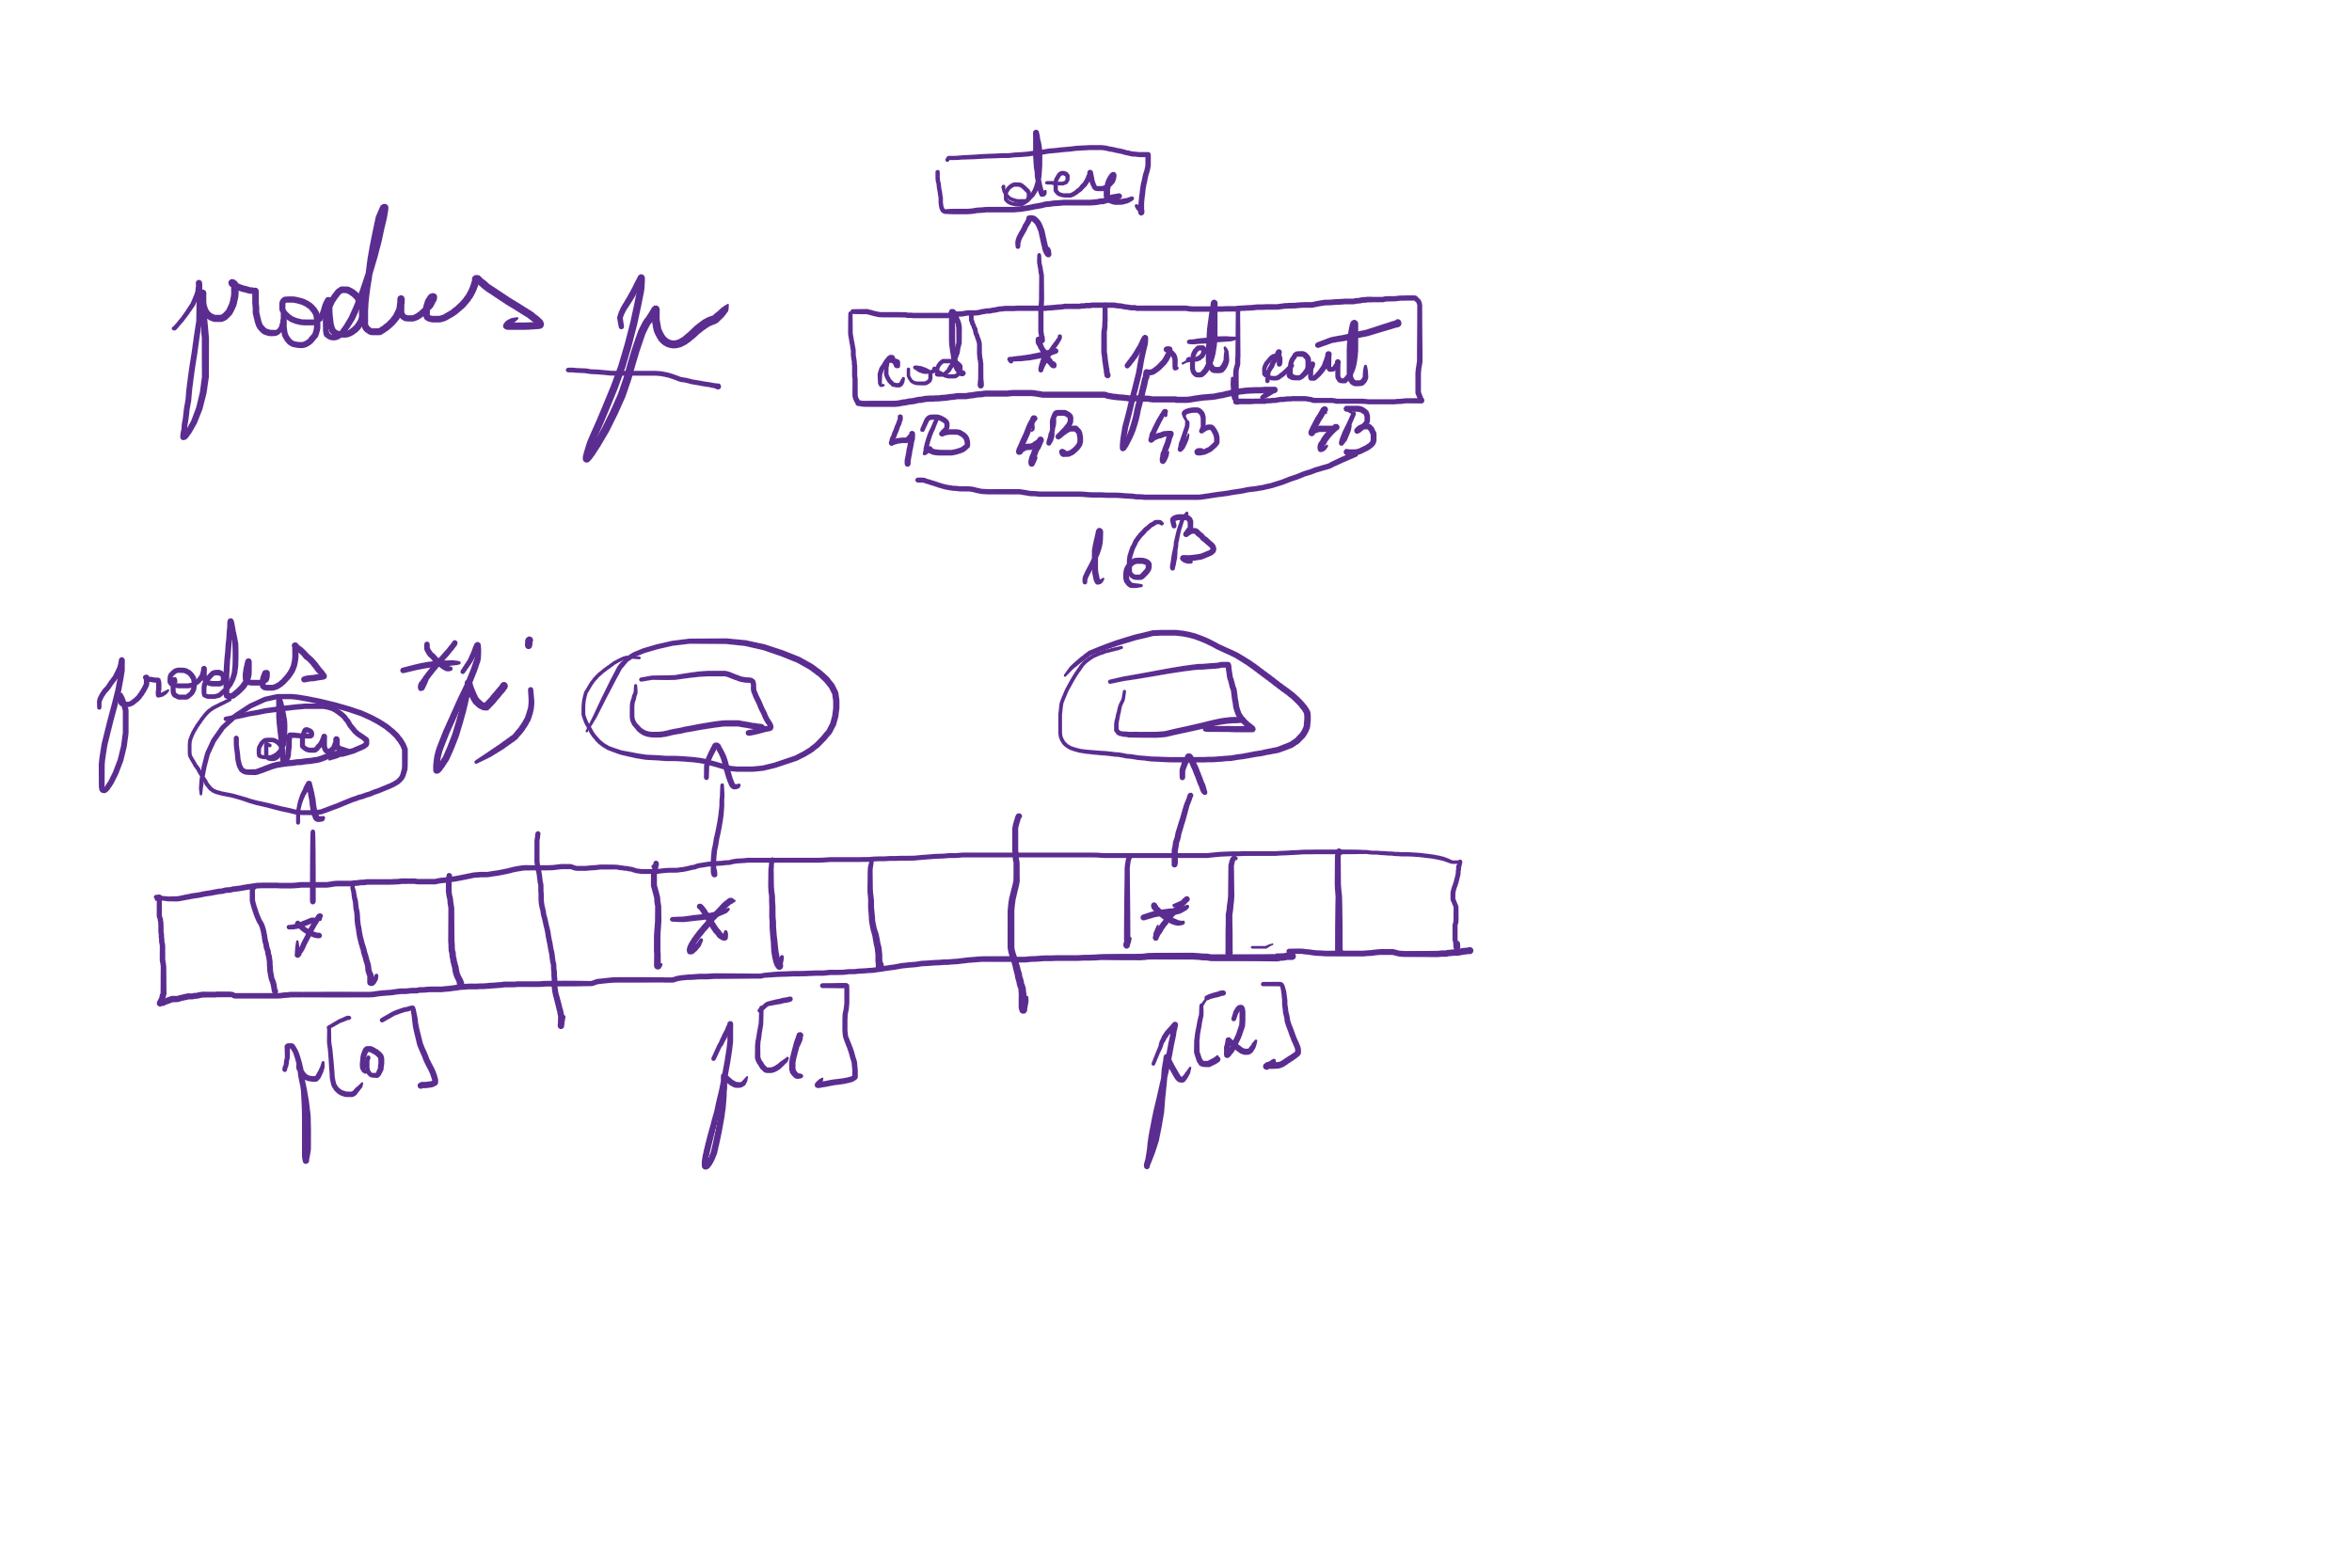 aden
produs p
cod * pret cant
4B 4B 4B 4B
16B
produs *p;
aden
* * *
p[0] p[1] p[2]